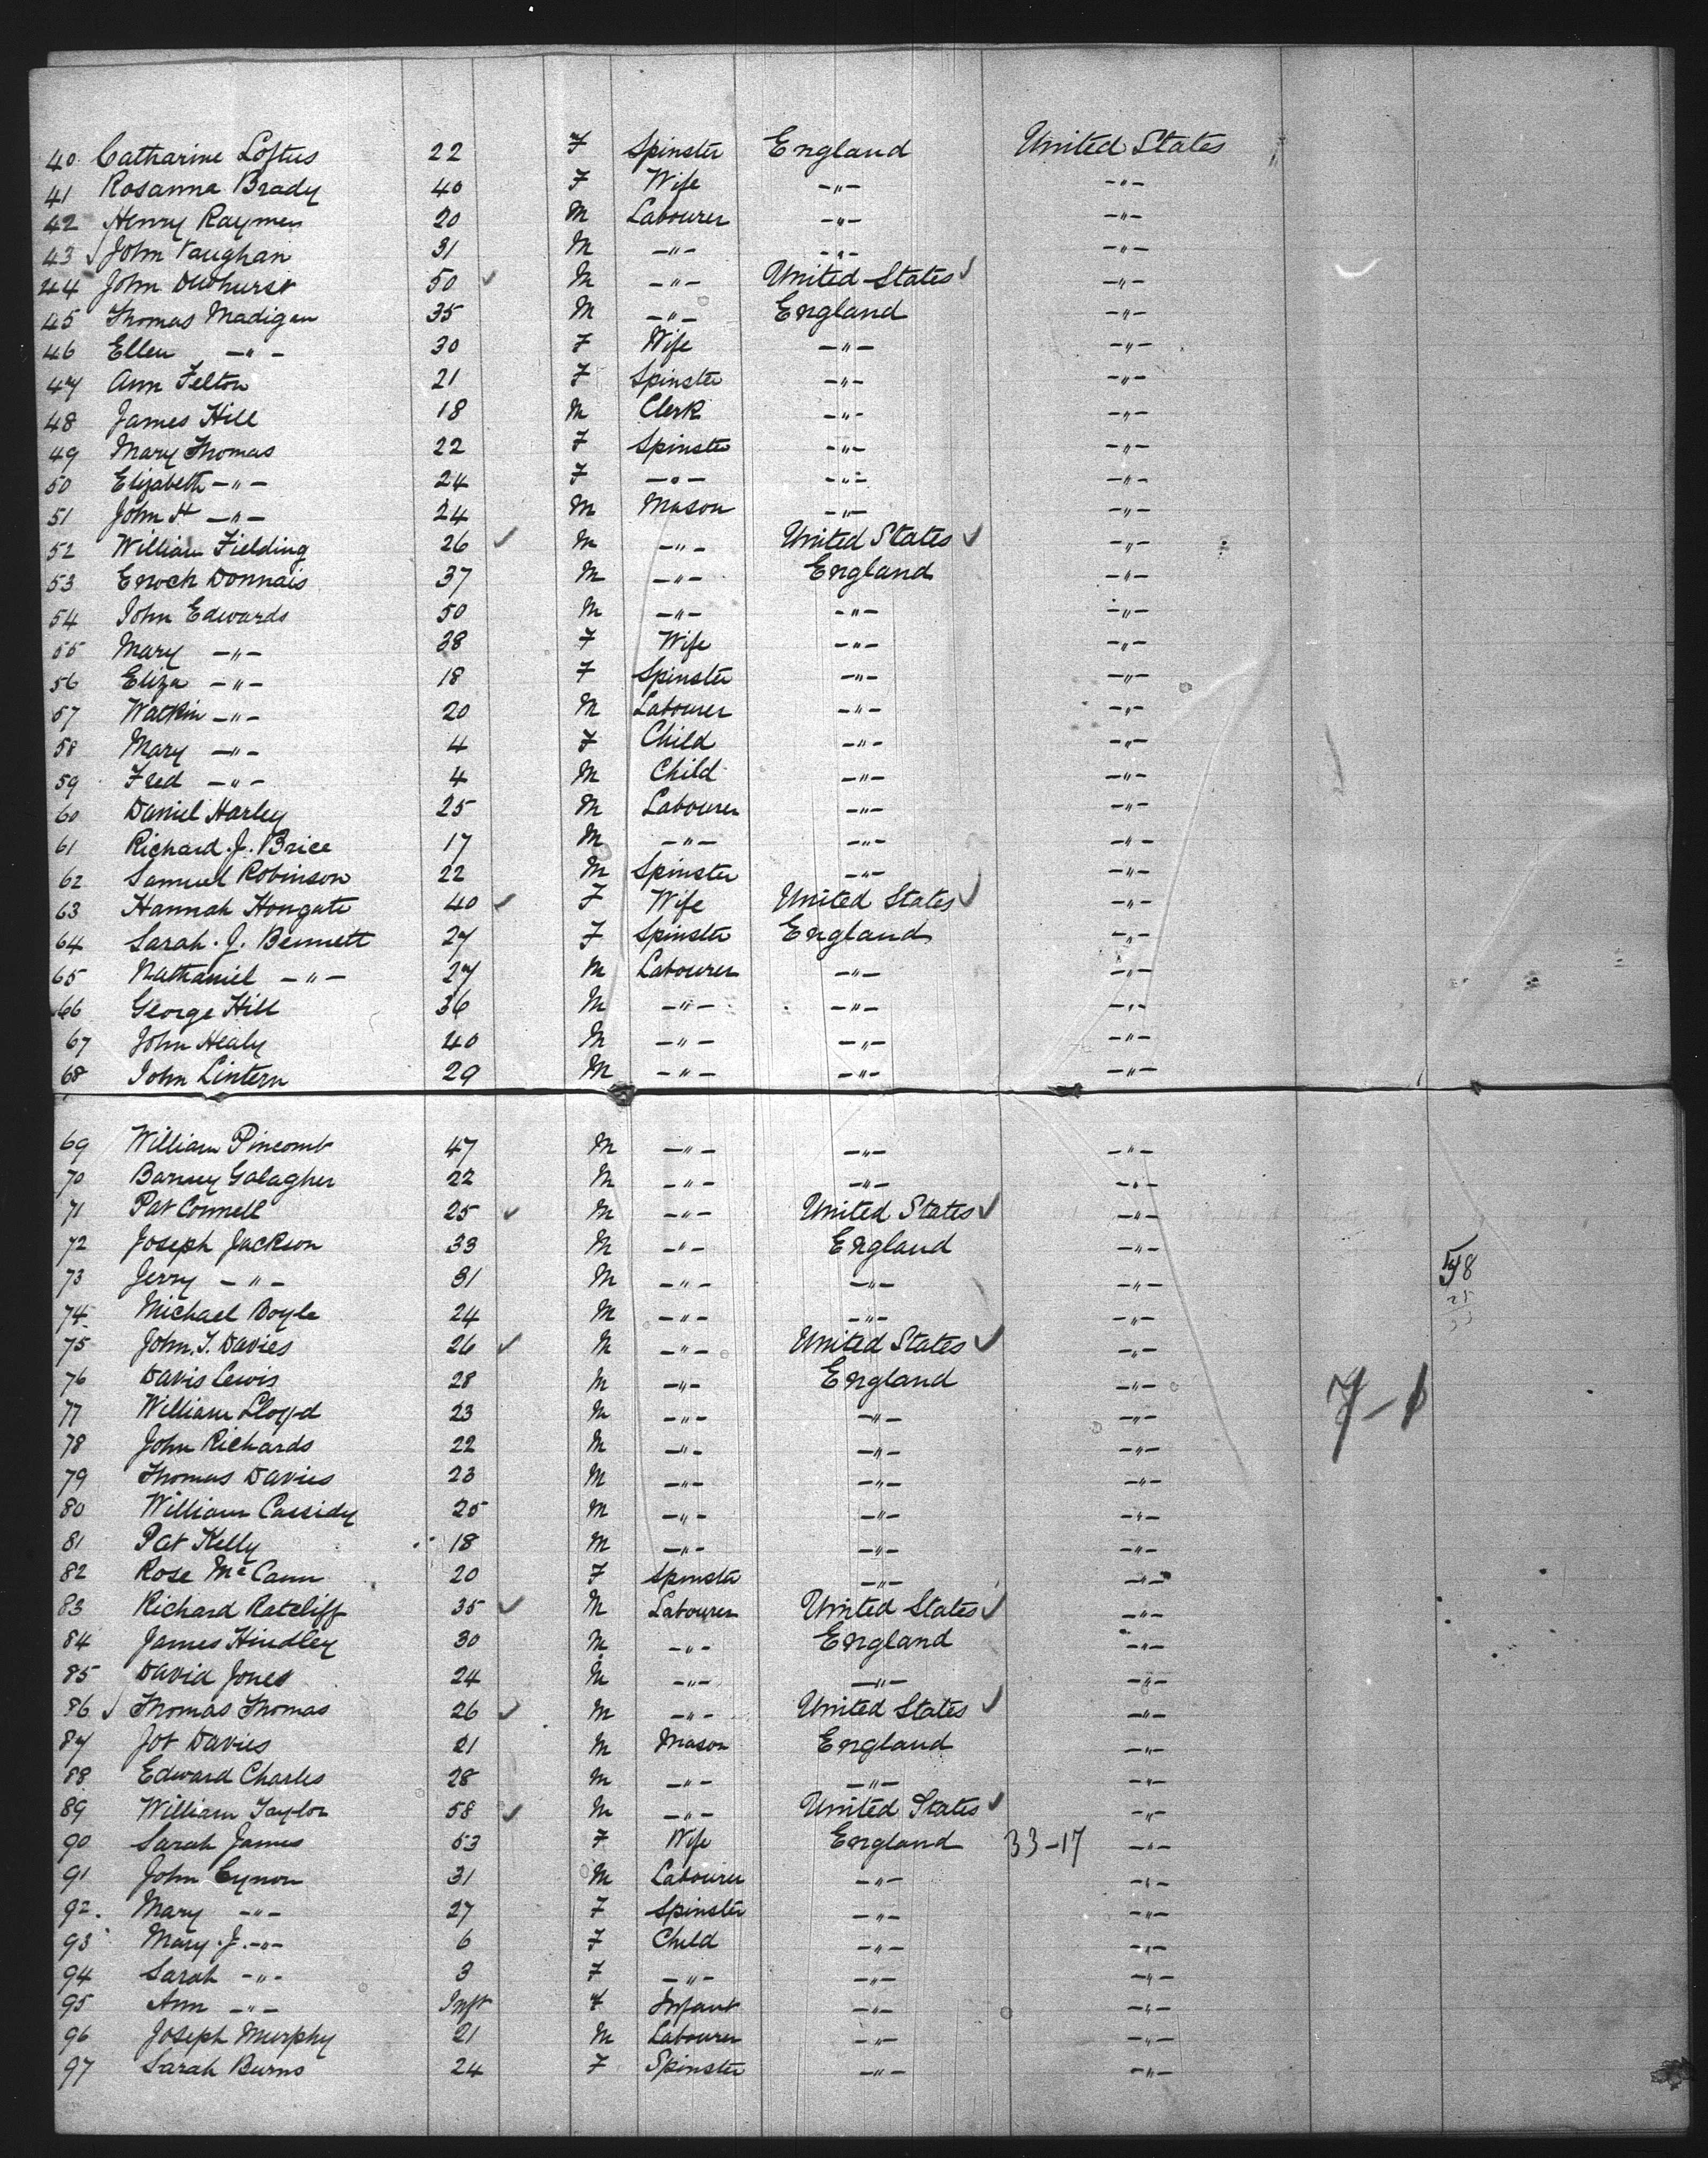 40 Catharine Loftus 22 F Spinster England United States
41 Rosanna Brady 40 F Wife -"- -"-
42 Henry Raymen 20 M Labourer -"- -"-
43 John Vaughan 31 M -"- -"- -"-
44 John Dewhurst 50 ✓ M -"- United States ✓ -"-
45 Thomas Madigan 35 M -"- England -"-
46 Ellen -"- 30 F Wife -"- -"-
47 Ann Felton 21 F Spinster -"- -"-
48 James Hill 18 M Clerk -"- -"-
49 Mary Thomas 22 F Spinster -"- -"-
50 Elizabeth -"- 24 F -"- -"- -"-
51 John H -"- 24 M Mason -"- -"-
52 William Fielding 26 ✓ M -"- United States ✓ -"-
53 Enoch Donnais 37 M -"- England -"-
54 John Edwards 50 M -"- -"- -"-
55 Mary -"- 38 F Wife -"- -"-
56 Eliza -"- 18 F Spinster -"- -"-
57 Watkin -"- 20 M Labourer -"- -"-
58 Mary -"- 4 F Child -"- -"-
59 Fred -"- 4 M Child -"- -"-
60 Daniel Harley 25 M Labourer -"- -"-
61 Richard. J. Brice 17 M -"- -"- -"-
62 Samuel Robinson 22 M Spinster -"- -"-
63 Hannah Hongate 40 ✓ F Wife United States ✓ -"-
64 Sarah. J. Bennett 27 F Spinster England -"-
65 Nathaniel -"- 27 M Labourer -"- -"-
66 George Hill 36 M -"- -"- -"-
67 John Healy 40 M -"- -"- -"-
68 John Lintern 29 M -"- -"- -"-
69 William Pincomb 47 M -"- -"- -"-
70 Barney Galagher 22 M -"- -"- -"-
71 Pat Connell 25 ✓ M -"- United States ✓ -"-
72 Joseph Jackson 33 M -"- England -"-
73 Jerry -"- 31 M -"- -"- -"-
74 Michael Boyle 24 M -"- -"- -"-
75 John. T. Davies 26 ✓ M -"- United States ✓ -"-
76 Davis Lewis 28 M -"- England -"-
7-1
77 William Lloyd 23 M -"- -"- -"-
78 John Richards 22 M -"- -"- -"-
79 Thomas Davies 23 M -"- -"- -"-
80 William Cassidy 25 M -"- -"- -"-
81 Pat Kelly 18 M -"- -"- -"-
82 Rose McCann 20 F Spinster -"- -"-
83 Richard Ratcliff 35 ✓ M Labourer United States ✓ -"-
84 James Hindley 30 M -"- England -"-
85 David Jones 24 M -"- -"- -"-
86 ✓ Thomas Thomas 26 ✓ M -"- United States ✓ -"-
87 Job Davies 21 M Mason England -"-
88 Edward Charles 28 M -"- -"- -"-
89 William Taylor 58 ✓ M -"- United States ✓ -"-
90 Sarah James 53 F Wife England 33-17 -"-
91 John Cynon 31 M Labourer -"- -"-
92. Mary -"- 27 F Spinster -"- -"-
93 Mary. J. -"- 6 F Child -"- -"-
94 Sarah -"- 3 F -"- -"- -"-
95 Ann -"- Inft F Infant -"- -"-
96 Joseph Murphy 21 M Labourer -"- -"-
97 Sarah Burns 24 F Spinster -"- -"-